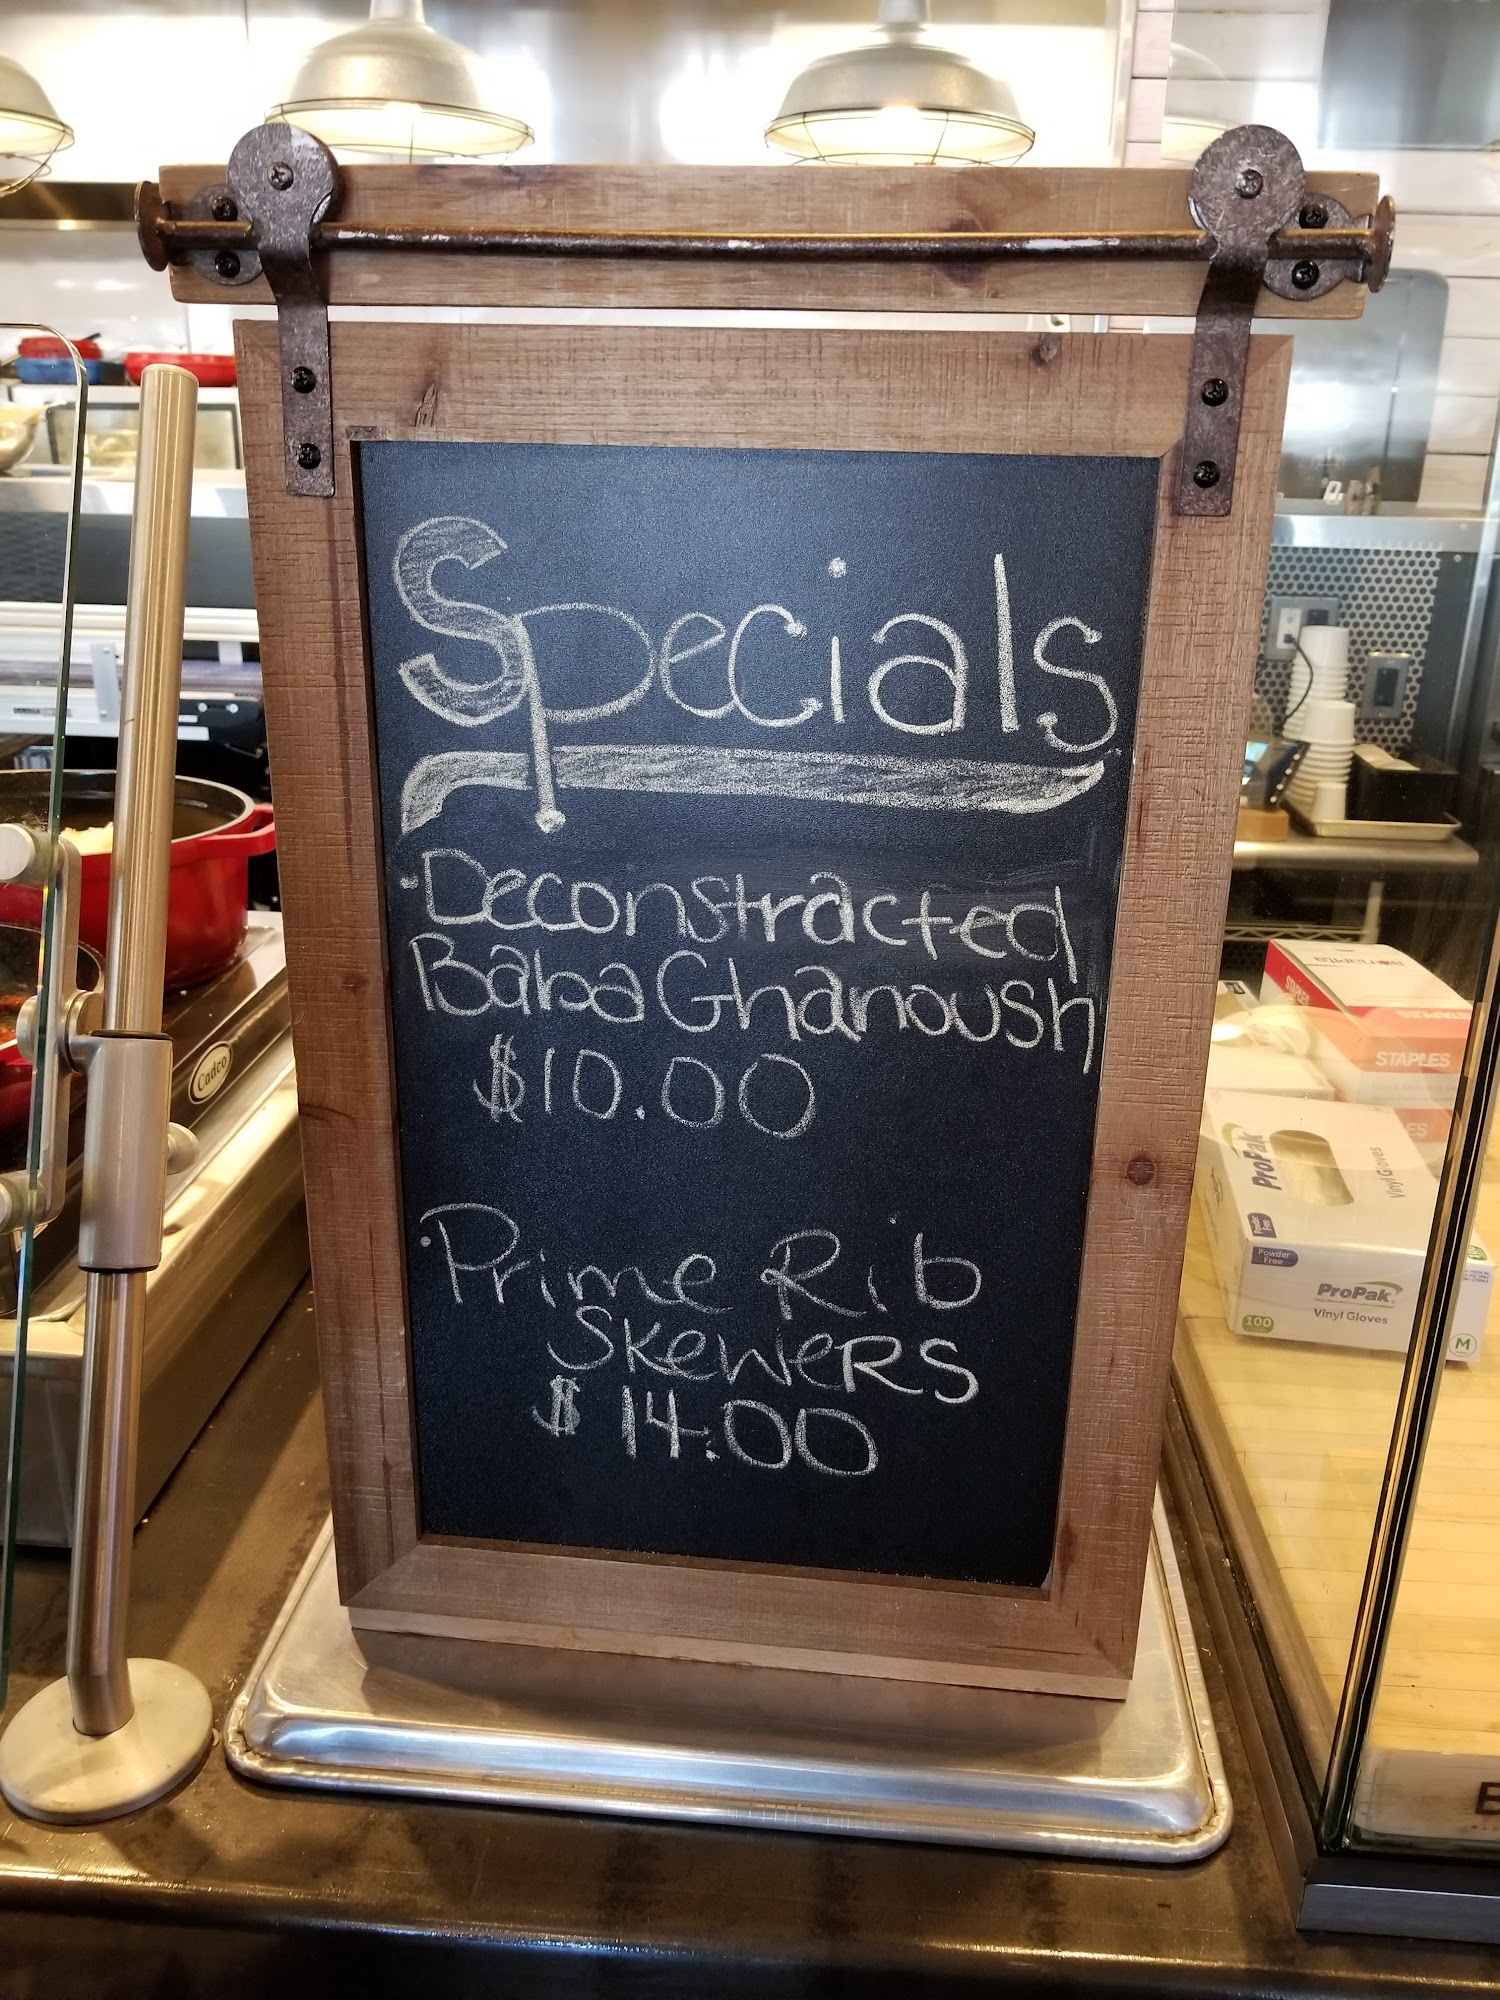 Specials
·Deconstracted
Baba Ghanoush
$10.00
·Prime Rib
SKeweRS
$ 14.00
Cadco
STAPLES
STAPLES
ProPak
Vinyl Gloves
Powder
Free
ProPak
Vinyl Gloves
100
M